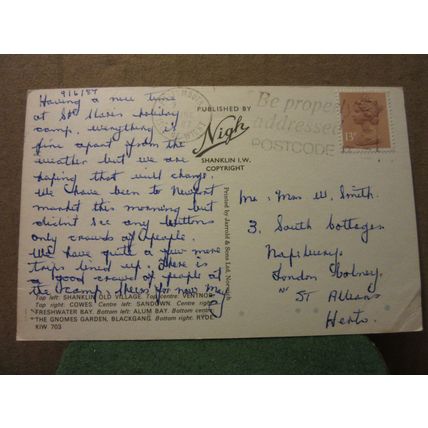 9/6/87
Having a nice time
at St Clares holiday
camp, everything is
fine apart from the
weather but we are
hoping that will change.
We have been to Newport
market this morning but
didn't see any buttons
only crowds of people.
We have quite a few more
trips lined up. There is
a good crowd of people at
the camp. Cheerio for now
Top left: SHANKLIN OLD VILLAGE. Top centre: VENTNOR
Top right: COWES Centre left: SANDOWN Centre right:
FRESHWATER BAY. Bottom left: ALUM BAY. Bottom centre:
THE GNOMES GARDEN, BLACKGANG Bottom right: RYDE
KIW 703
PUBLISHED BY
Nigh
SHANKLIN I.W.
COPYRIGHT
Printed by Jarrold & Sons Ltd, Norwich
Be properly
addressed
POSTCODE
13P
Mr. Mrs W. Smith.
3. South Cottages
Napsbury
London Colney.
Nr ST Albans
Herts.